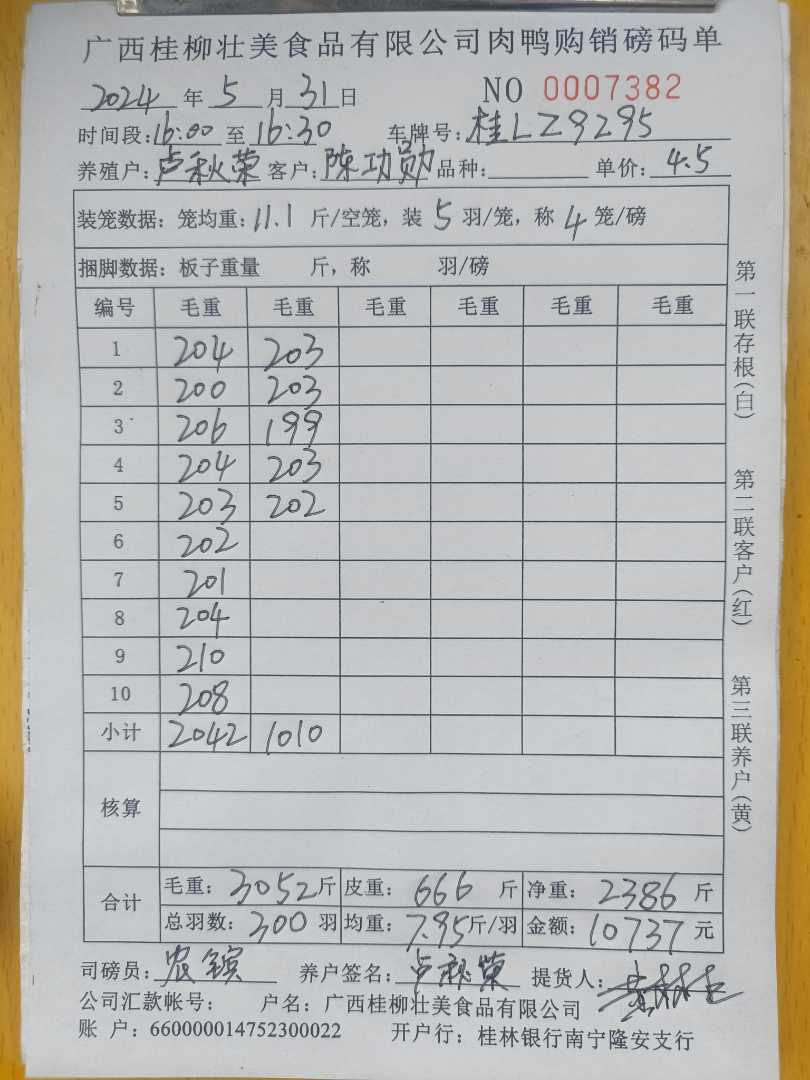 广西桂柳壮美食品有限公司肉鸭购销磅码单
2024 年 5 月 31 日 NO 0007382
时间段: 16:00 至 16:30 车牌号: 桂LZ9295
养殖户: 卢秋荣 客户: 陈功勋 品种: 单价: 4.5
装笼数据: 笼均重: 11.1 斤/空笼, 装 5 羽/笼, 称 4 笼/磅
捆脚数据: 板子重量 斤, 称 羽/磅
编号 毛重 毛重 毛重 毛重 毛重 毛重
1 204 203
2 200 203
3 206 199
4 204 203
5 203 202
6 202
7 201
8 204
9 210
10 208
小计 2042 1010
核算
合计 毛重: 3052 斤 皮重: 666 斤 净重: 2386 斤
总羽数: 300 羽 均重: 7.95 斤/羽 金额: 10737 元
司磅员: 农镔 养户签名: 卢秋荣 提货人:
公司汇款帐号: 户名: 广西桂柳壮美食品有限公司
账 户: 660000014752300022 开户行: 桂林银行南宁隆安支行
第一联存根(白)
第二联客户(红)
第三联养户(黄)